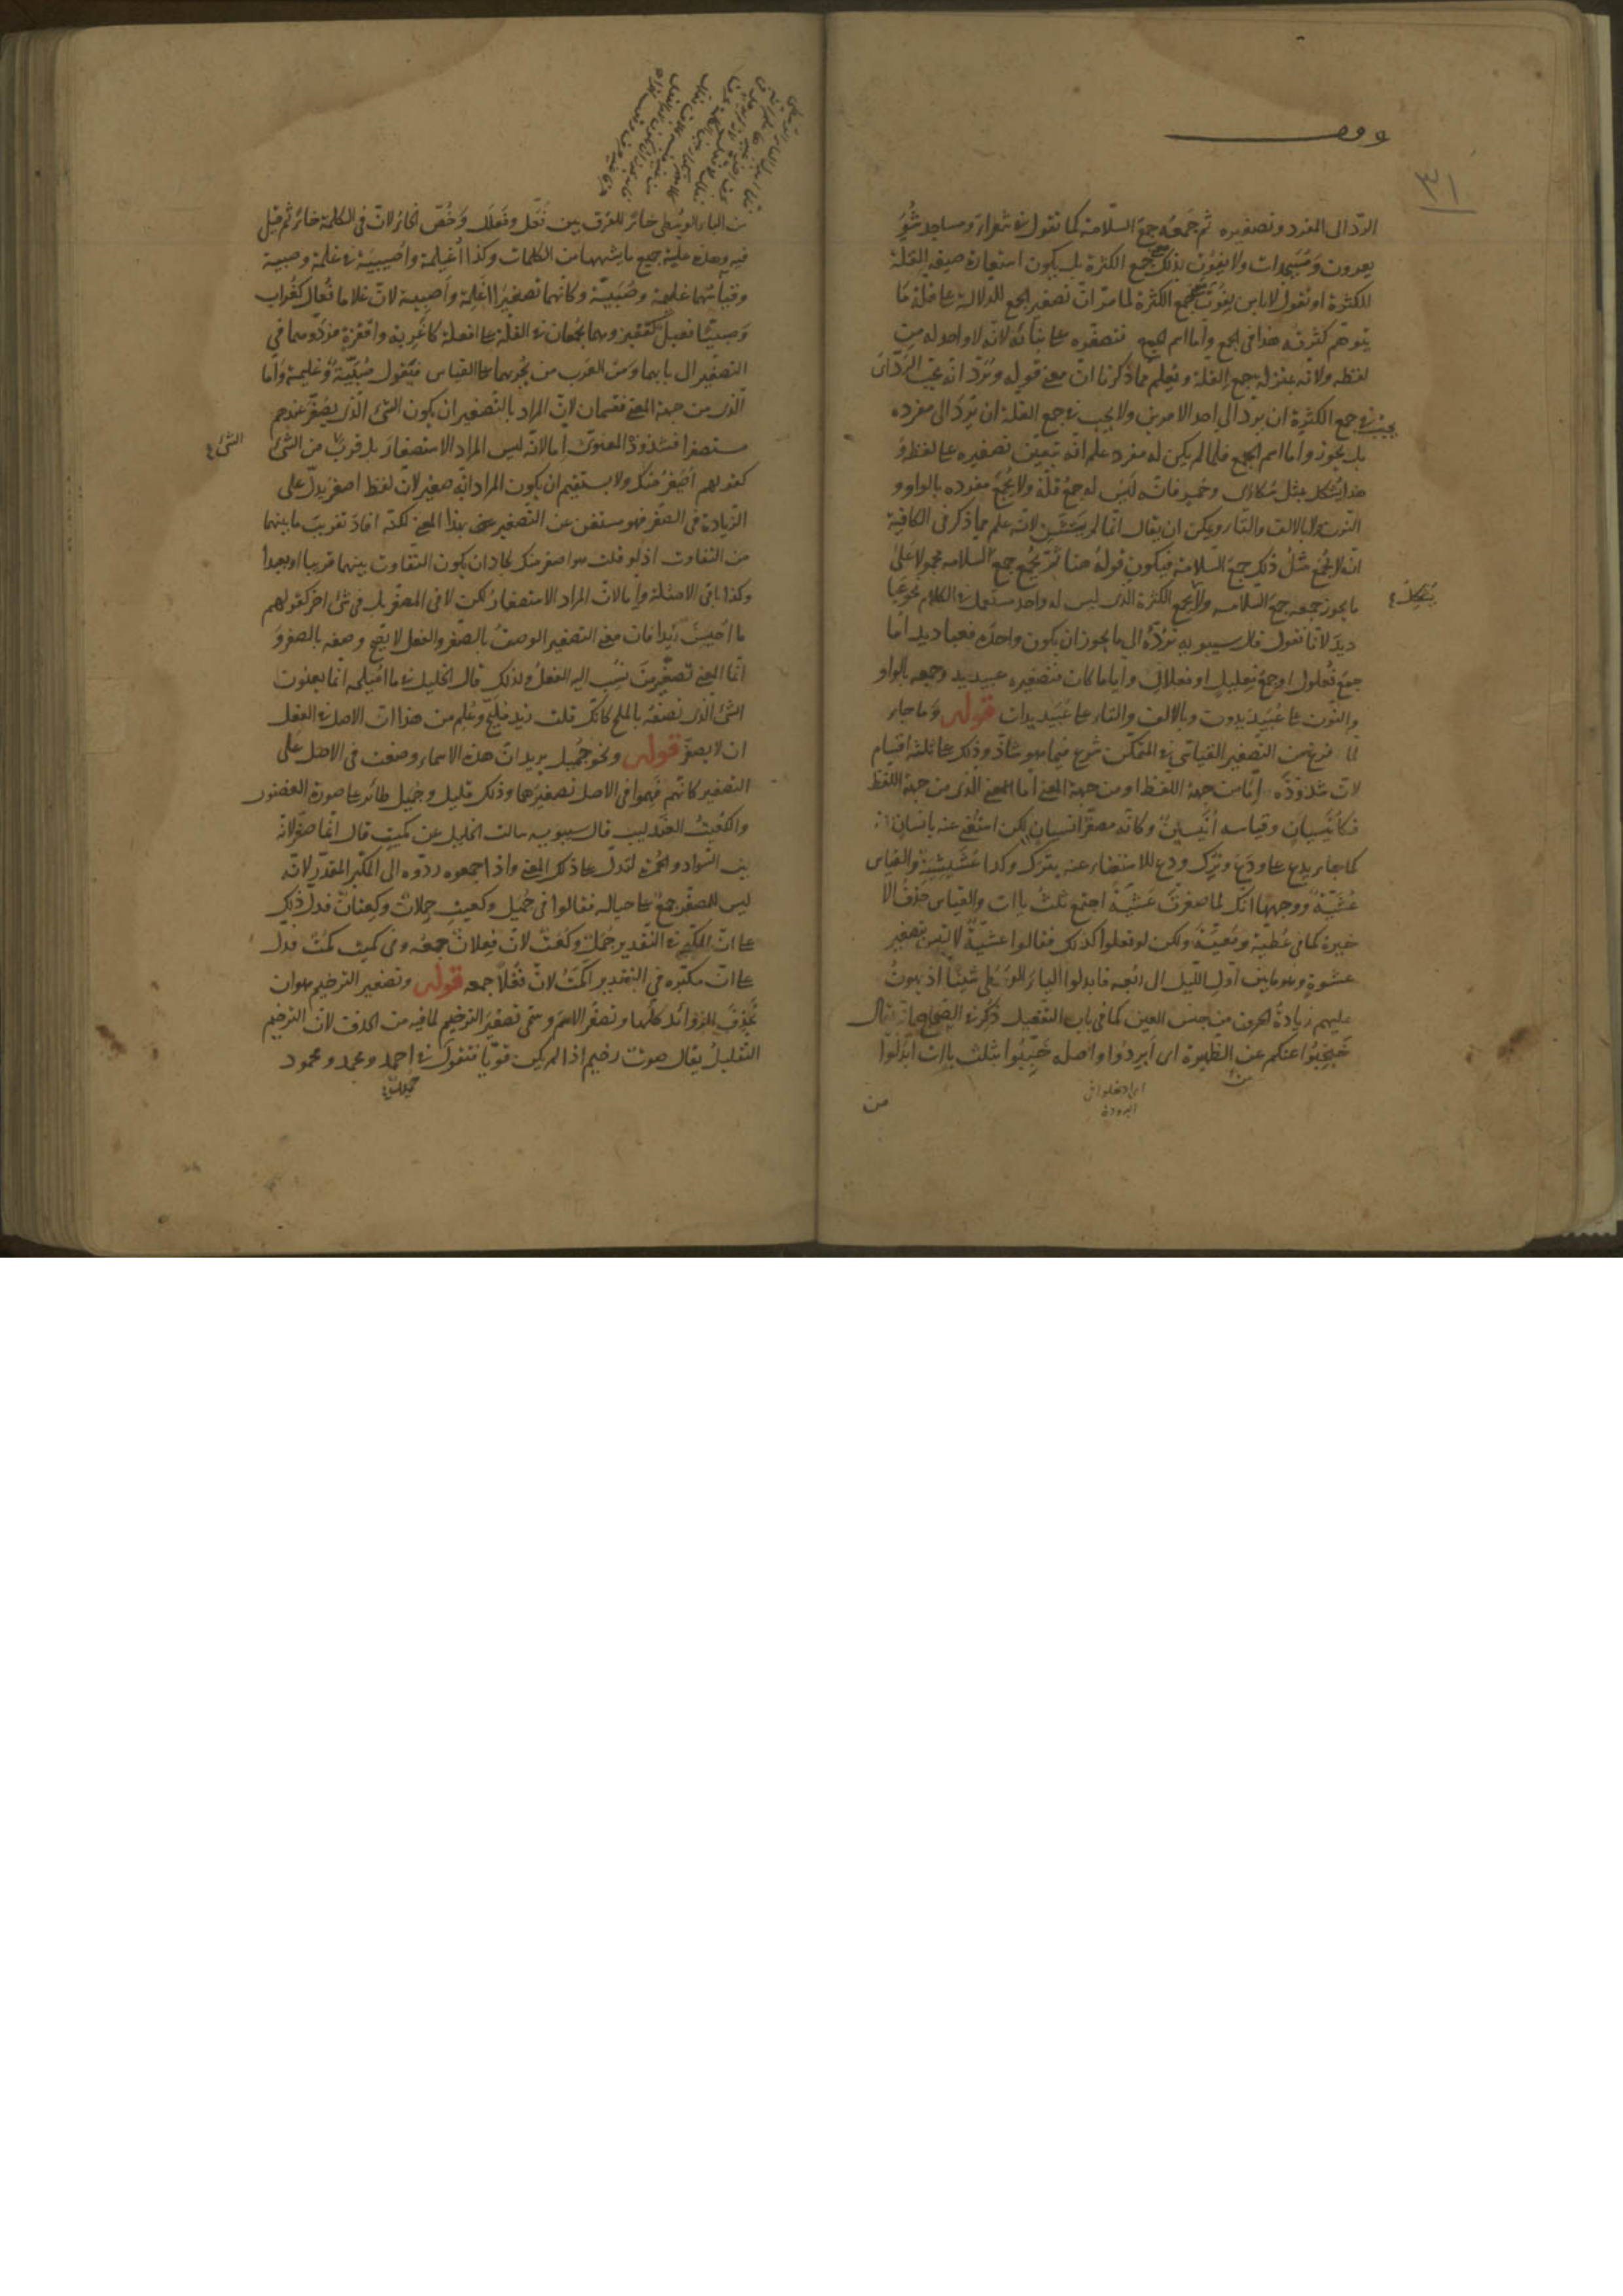 وقف
٣١
الردّ الى المفرد وتصغيره ثم جَمعُه جمعَ السلامة كما تقول في شعراء ومساجد شُوَ
يعرون ومُسَيجدات ولا يفوت بذلك جمع الكثرة بل يكون استعارة صيغة القلة
للكثرة او تقول لا باس بفوت جمع الكثرة لما مرّ انّ تصغير الجمع للدلالة على قلة ما
يتوهم كثرته هذا في الجمع واما اسم الجمع فتصغره على بنائه لانّه لا واحد له من
لفظه ولانه بمنزلة جمع القلة وتعلم مما ذكرنا انّ معنى قوله ويُرَدّ انّه يجب الردّ اى
يجب في جمع الكثرة ان يردّ الى احد الامرين ولا يجب في جمع القلة ان يُرَدّ الى مفرده
بل يجوز واما اسم الجمع فلما لم يكن له مفرد علم انّه يتعين تصغيره على لفظه و
هذا يُشكل بمثل سُكارى وحُمر فانّه ليس له جمع قلّة ولا يُجمَع مفرده بالواو و
النون ولا بالالف والتاء ويمكن ان يقال انّما لم يستثن لانّه علم مما ذكر في الكافية
انّه لا يُجمَع مثلُ ذلك جمعَ السلامة فيكون قولُه هنا ثمّ يُجمع جمع السلامة محمولا على
ما يجوز جمعه جمع السلامة ولا بجمع الكثرة الذى ليس له واحد مستعمل في الكلام نحو عبا
ديدَ لانّا نقول قال سيبويه تردّه الى ما يجوز ان يكون واحدَه فعباديد امّا
جمع فُعلول او جمع فِعليل او فعلال واياما كان فتصغيره عبيديد وجمعه بالواو
والنّون على عُبَيديدون وبالالف والتاء على عُبَيديدات قوله وما جاء
لما فرغ من التصغير القياسى في المتمكن شرع فيما هو شاذّ وذلك على ثلثة اقسام
لانّ شذوذه امّا من جهة اللفظ او من جهة المعنى اما المعنى الذى من جهة اللفظ
فكأُنَيسيان وقياسه اُنَيسان وكانّه مصغّر انسيان لكن استُغنى عنه بانسان
كما جاء يدع على ودَعَ وتُرك ودع للاستغناء عنه بترك وكذا عُشَيشِيَة والقياس
عُشَيّة ووجهها انّك لما صغرت عَشيّة اجتمع ثلثُ ياآت والقياس حذف الا
خيرة كما في عُطَيّة ومُعَيّة ولكن لو فعلوا كذلك فقالوا عشيّة لالتبس بتصغير
عشوة وهو ما بين اوّل اللّيل الى رُبعه فابدلوا الياء الوُسطى شيئًا اذ يهون
عليهم زيادة الحرف من جنس العين كما في باب التفعيل ذكر في الصّحاح انّه يقال
خَبخِبُوا عنكم من الظهيرة اى أَبرِدُوا واصله خَبِّبُوا بثلث باآت ابدَلُوا
اى ادخلوا في
البرودة
من
من الباء الوُسطى خاءً للفرق بين فَعَّل وفَعلَل وخُصّ الخاءُ لانّ في الكلمة خاءً ثم قيل
فيه وهذه علّية جميع ما يشبهها من الكلمات وكذا اُغَيلمة واُصَيبيَة في غلمة وصبية
وقياسهما غليمة وصُبَيّة وكانهما تصغير اغلِمة واَصبِية لانّ غلاما فُعال كغُراب
وصبيّا فعيل كقفيز وهما يُجمعان في القلّة على افعلة كاَغرِبة واقفزة فردّوهما في
التصغير الى بابهما ومن العرب من يُجريهما على القياس فيقول صُبَيّة وغُليمة واما
الّذى من جهة المعنى فقسمان لانّ المراد بالتّصغير ان يكون الشئ الّذى يُصغّر عندهم
مستصغرا فشذوذ المعنوىّ امّا لانّه ليس المراد الاستصغارَ بل قربَ من الشئ
كقولهم اُصَيغِرُ منك ولا يستقيم ان يكون المراد انّه صغير لانّ لفظ اصغر يدلّ على
الزّيادة في الصّغر فهو مستغن عن التّصغير بهذا المعنى لكنّه افاد تقريبَ ما بينهما
من التفاوت اذ لو قلت هو اصغر منك لجاز ان يكون التفاوت بينهما قريبا او بعيدا
وكذا باقى الامثلة وامّا لانّ المراد الاستصغارُ لكن لا في المصغّر بل في شئ اخر كقولهم
ما اُحَيسِنَ زيدًا فانّ معنى التصغير الوصفُ بالصّغر والفعل لا يصح وصفه بالصغر و
انّما المعنى تصغير من نُسِب اليه الفعلُ ولذلك قال الخليل في ما اُمَيلحه انّما يعنون
الشئ الّذى تصفه بالملح كانّك قلت زيد مُليّح وعُلِم من هذا انّ الاصل في الفعل
ان لا يصغّر قوله ونحو جُمَيل يريد انّ هذه الاسماء وضعت في الاصل على
التصغير كانّهم فهموا في الاصل تصغيرها وذلك قليل وجُمَيل طائر على صورة العصفور
والكُعَيتُ العندليب قال سيبويه سالت الخليل عن كُمَيت قال انّما صغّر لانّه
بين السّواد والحُمرة لتدلّ على ذلك المعنى واذا جمعوه ردّوه الى المكبّر المقدّر لانّه
ليس للمصغّر جمعٌ على حياله فقالوا في جُمَيل وكعيت جِملان وكِعتان فدلّ ذلك
على انّ المكبّر في التقدير جُمَلٌ وكُعَتٌ لانّ فِعلان جمعُه وفى كميت كُمْتٌ فدلّ
على انّ مكبّره في التّقدير اكمَتُ لانّ فُعْلاً جمعه قوله وتصغير الترخيم هو ان
يُحذَفَ الزّوائد كلّها ويصغَّر الاسم وسمى تصغيرَ الترخيم لما فيه من الحذف لانّ الترخيم
التّقليل يقال صوت رخيم اذا لم يكن قويّا فتقول في احمد ومحمد ومحمود
حميد
الشئ